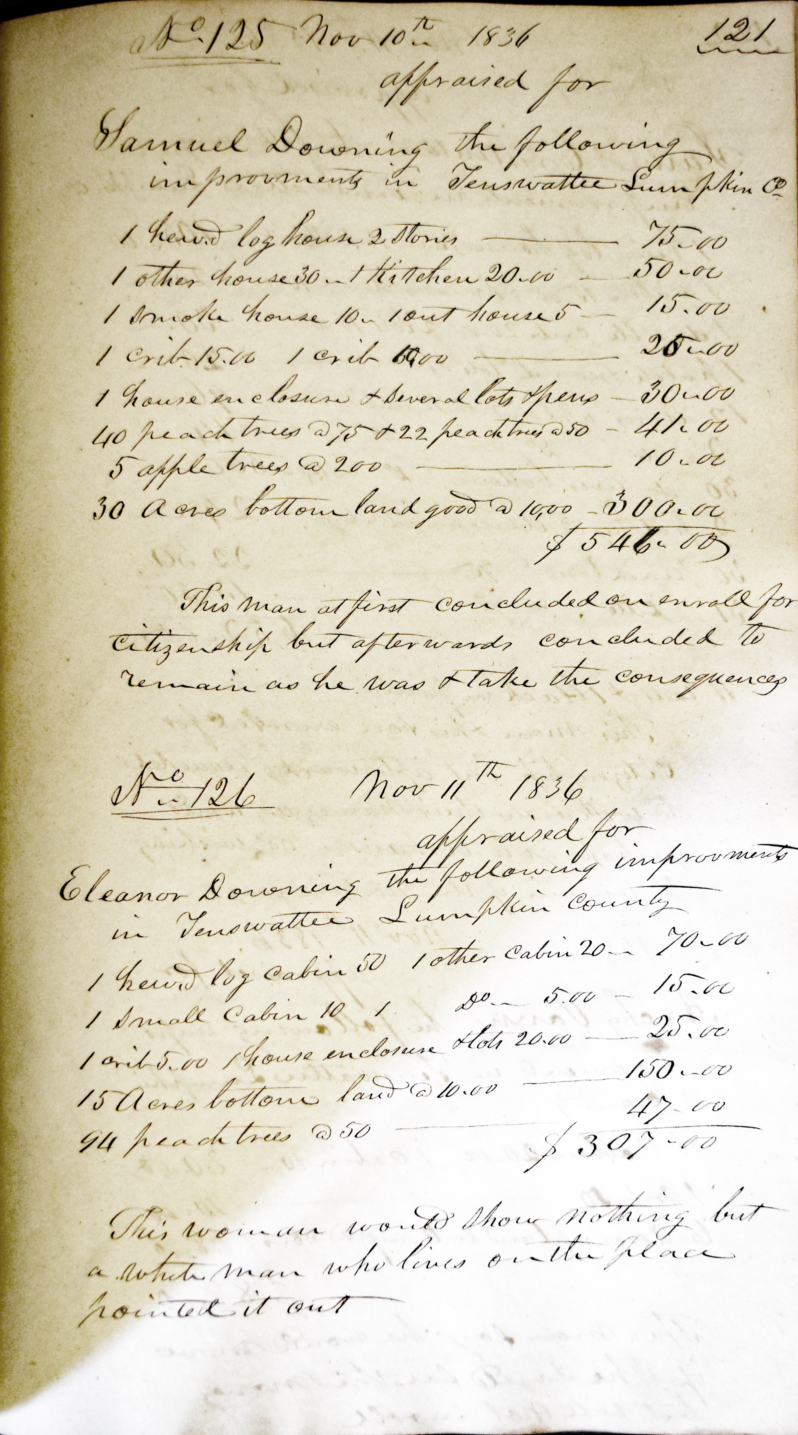 No. 125 Nov 10th 1836 121
appraised for
Samuel Downing the following
improvments in Tenswattee Lumpkin Co
1 hew.d log house 2 Stories — 75.00
1 other house 30.. 1 Kitchen 20.00 — 50.00
1 smoke house 10.. 1 out house 5 — 15.00
1 crib 15.00 1 crib 10.00 — 25.00
1 house enclosure & several lots & pens — 30.00
40 peach trees @ 75 & 22 peach trees @ 50 — 41.00
5 apple trees @ 200 — 10.00
30 Acres bottom land good @ 10,00 — 300.00
$ 546.00
This man at first concluded on enroll for
citizenship but afterwards concluded to
remain as he was & take the consequences
No. 126 Nov 11th 1836
appraised for
Eleanor Downing the following improvments
in Tenswattee Lumpkin County
1 hew.d log cabin 50 1 other cabin 20.. — 70.00
1 small cabin 10 1 Do.. 5.00 — 15.00
1 crib 5.00 1 house enclosure & lots 20.00 — 25.00
15 Acres bottom land @ 10.00 — 150.00
94 peach trees @ 50 — 47.00
$ 307.00
This woman would show nothing but
a white man who lives on the place
pointed it out